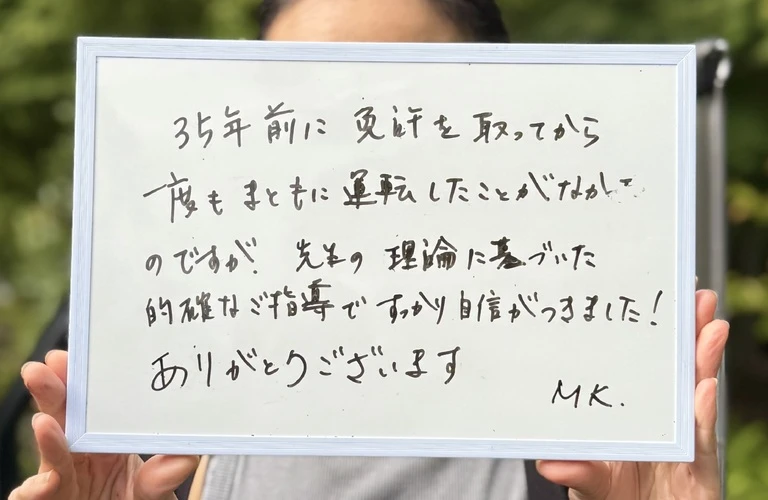 35年前に 免許を 取ってから
一度も まともに 運転 したことがなかった
のですが、先生の 理論に基づいた
的確なご指導で すっかり 自信がつきました！
ありがとうございます
MK.